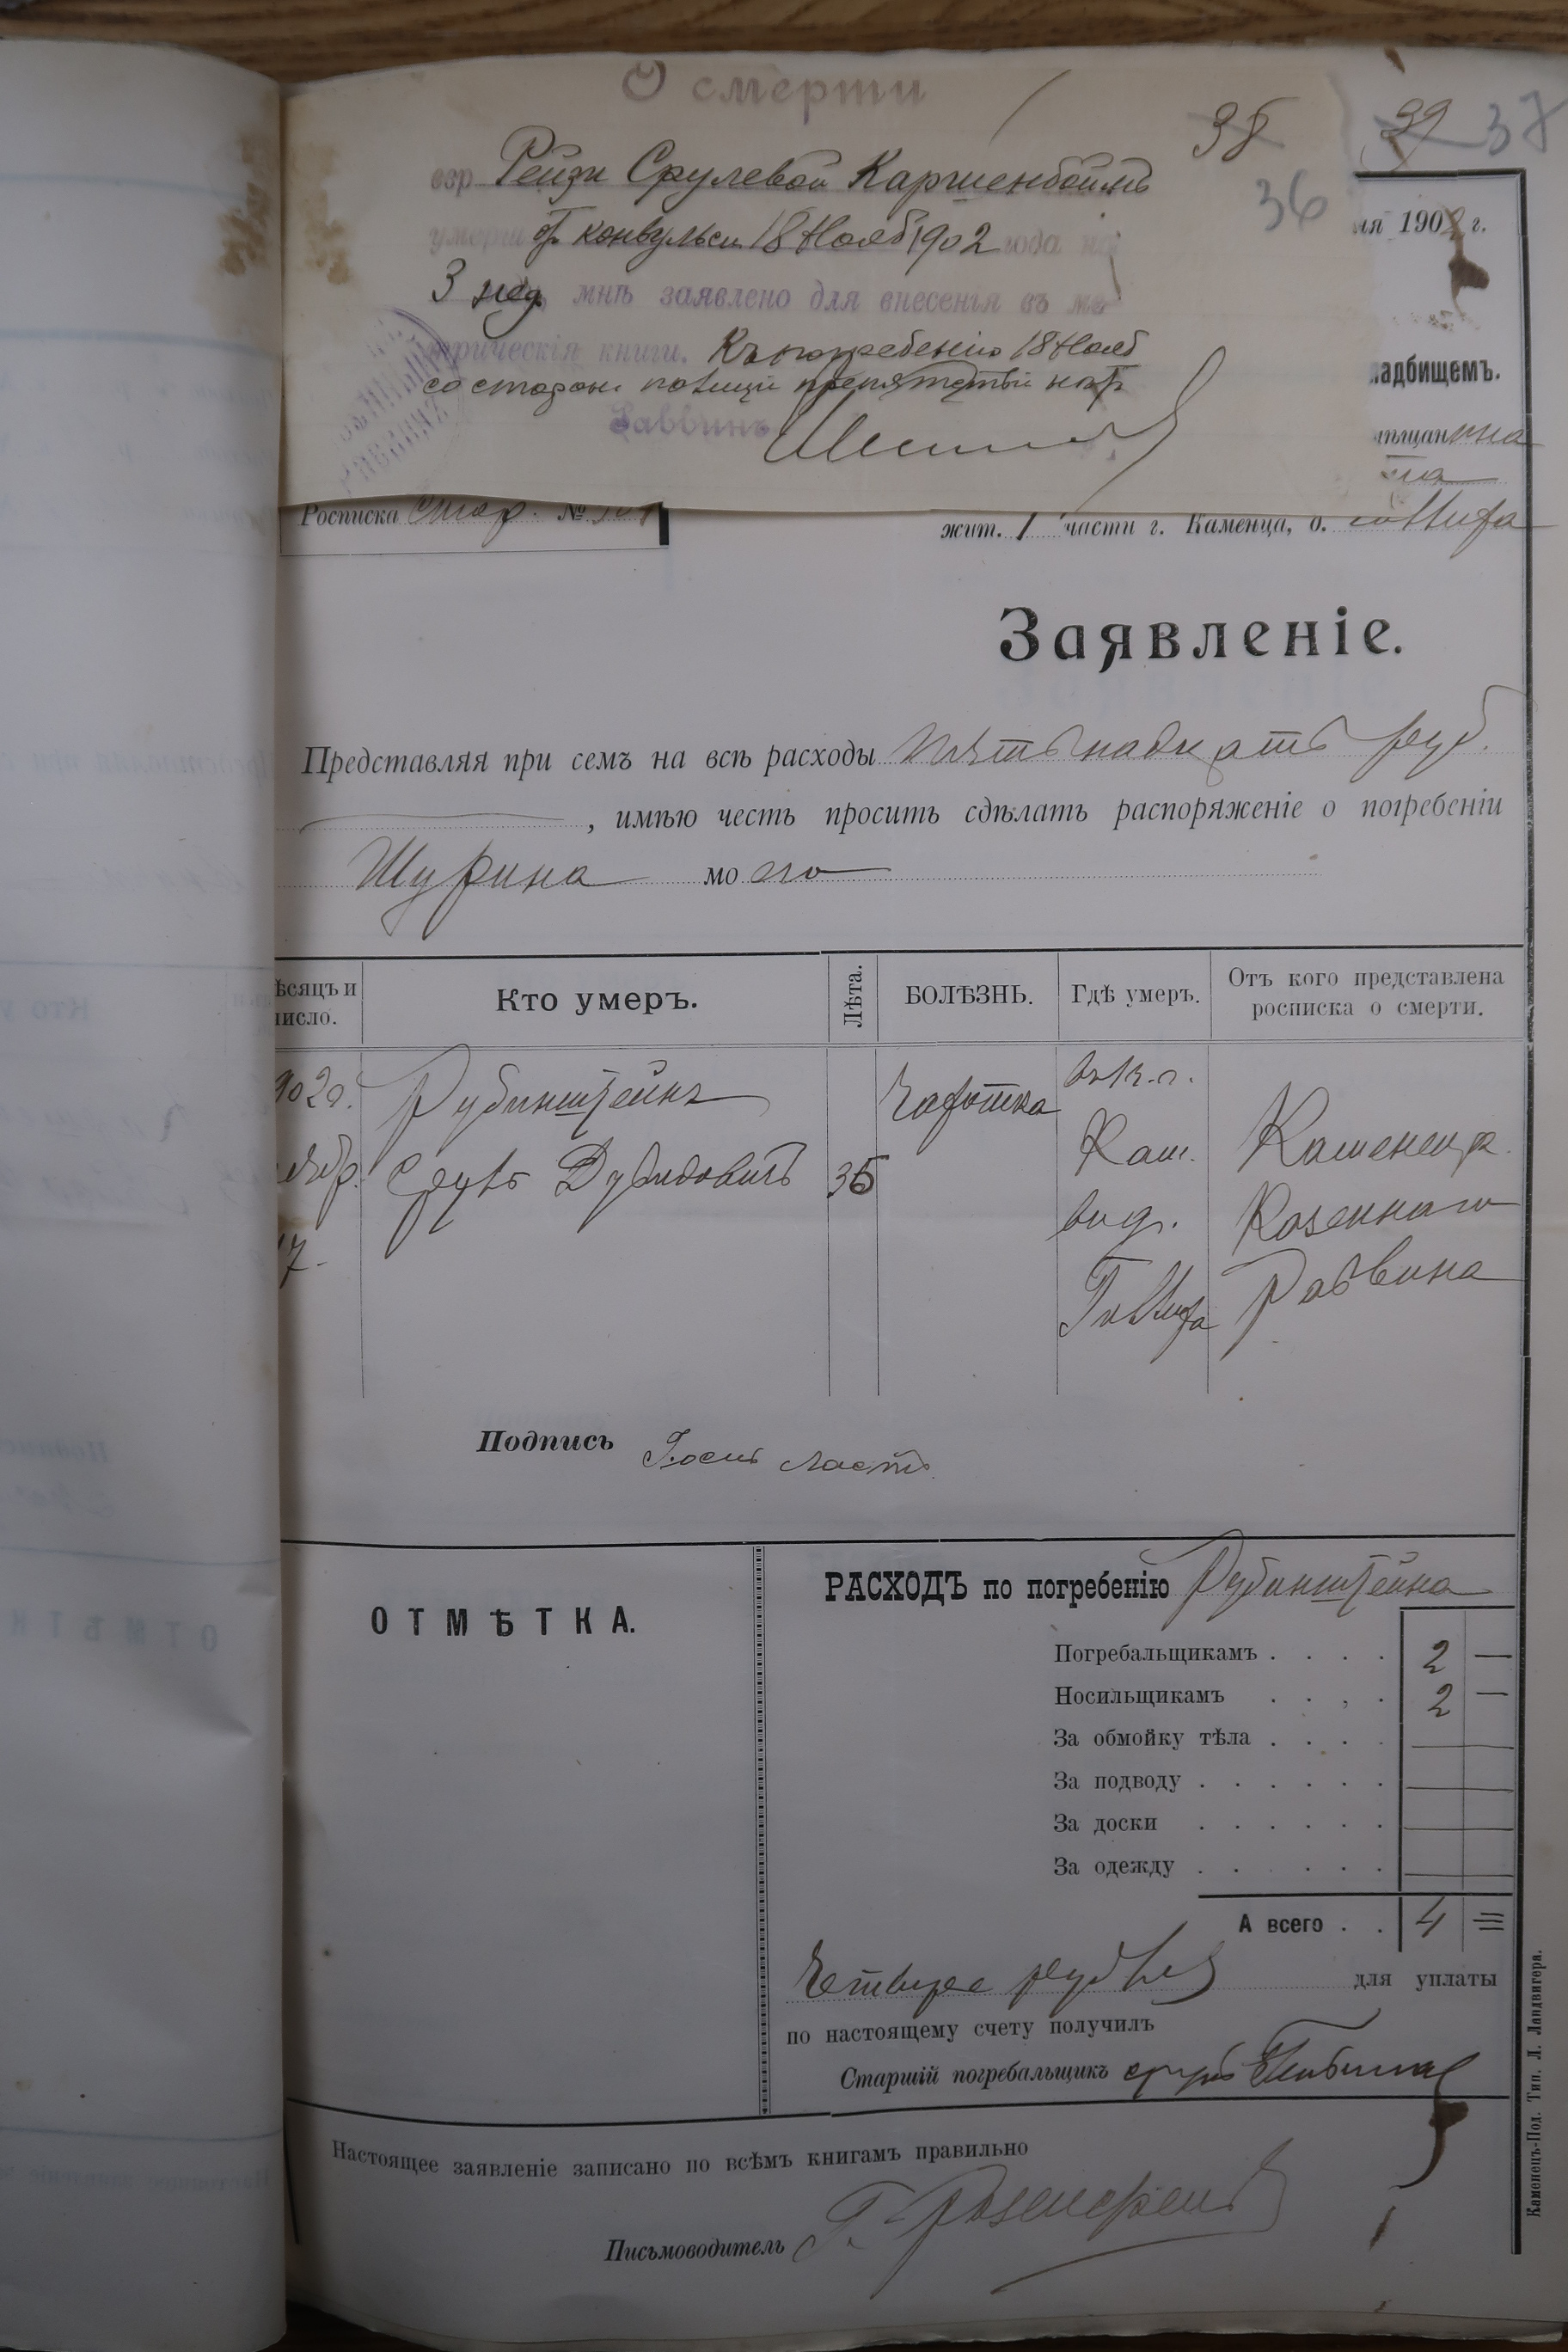 О смерти
38
39 37
36
евр. Рейзи Срулевой Каршенбоймъ
умерш от конвульси 18 Нояб 1902 года на
3 нед. мнѣ заявлено для внесенья въ ме
трическія книги. Къ погребенію 18 Нояб
со стороны полиціи препятствій нѣтъ
Раввинъ
ня 1902 г.
ладбищемъ.
мѣщанина
Росписка стор. №
жит. 1 части г. Каменца, о.
Заявленіе.
Представляя при семъ на всѣ расходы пятьнадцать руб.
, имѣю честь просить сдѣлать распоряженіе о погребеніи
Шурина моего
ѣсяцъ и число.
Кто умеръ.
Лѣта.
БОЛѢЗНЬ.
Гдѣ умеръ.
Отъ кого представлена росписка о смерти.
902 г.
ябр.
17.
Рубинштейнъ
Сруль Дувидовичъ
35
Чахотка
Кам.
Каменецк.
Казеннаго
Раввина
Подпись
ОТМѢТКА.
РАСХОДЪ по погребенію Рубинштейна
Погребальщикамъ . . . . 2 —
Носильщикамъ . . . . 2 —
За обмойку тѣла . . . . —
За подводу . . . . . . —
За доски . . . . . . —
За одежду . . . . . . —
А всего . . 4 =
Четыре рубля для уплаты
по настоящему счету получилъ
Старшій погребальщикъ
Настоящее заявленіе записано по всѣмъ книгамъ правильно
Письмоводитель Г. Розенфельд
Каменецъ-Под. Тип. Л. Ландвигера.